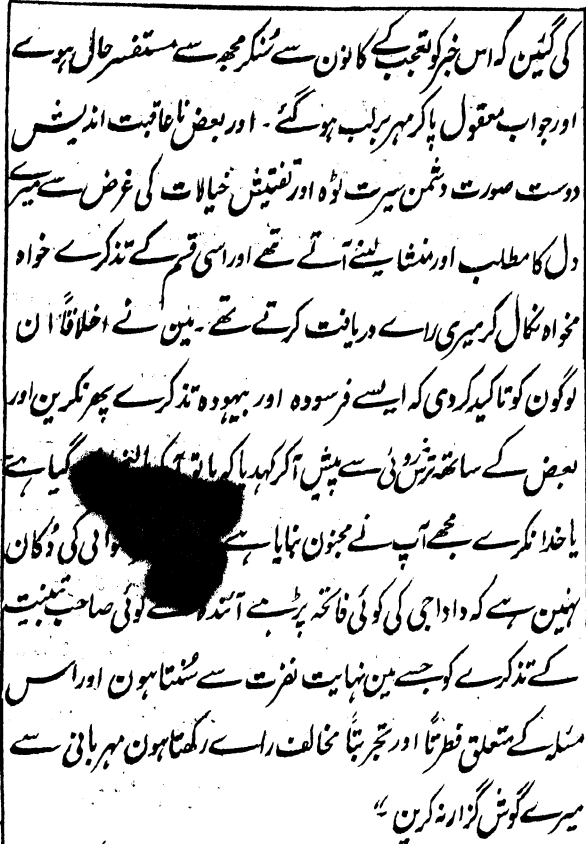 کی گئین کہ اس خبر کو تعجب کے کانون سے سُنکر مجھ سے مستفسر حال ہوے
اور جواب معقول پا کر مہر برلب ہو گئے ۔ اور بعض نا عاقبت اندیش
دوست صورت دشمن سیرت ٹوہ اور تفتیش خیالات کی غرض سے میرے
دل کا مطلب اور منشا لینے آتے تھے اور اسی قسم کے تذکرے خواہ
مخواہ نکال کر میری راے دریافت کرتے تھے ۔ مین نے اخلاقاً ان
لوگون کو تاکید کر دی کہ ایسے فرسودہ اور بیہودہ تذکرے پھر نکرین اور
بعض کے ساتھ ترشروئی سے پیش آ کر کہدیا کہ یا تو گیا ہے
یا خدا نکرے مجھے آپ نے مجنون بنایا ہے کی دُکان
نہین ہے کہ داداجی کی کوئی فاتحہ پڑہے آئندہ کوئی صاحب تبینیت
کے تذکرے کو جسے مین نہایت نفرت سے سُنتا ہون اور اس
مسئلہ کے متعلق فطرتاً اور تجربتاً مخالف راے رکھتا ہون مہربانی سے
میرے گوش گزار نہ کرین ۔"